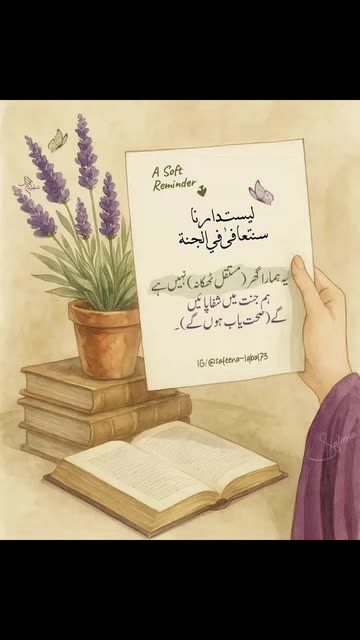 A Soft
Reminder
ليست دارنا
سنتعافىٰ في الجنة
یہ ہمارا گھر (مستقل ٹھکانہ) نہیں ہے
ہم جنت میں شفا پائیں
گے (صحت یاب ہوں گے)۔
IG/@safeena-Iqbal73